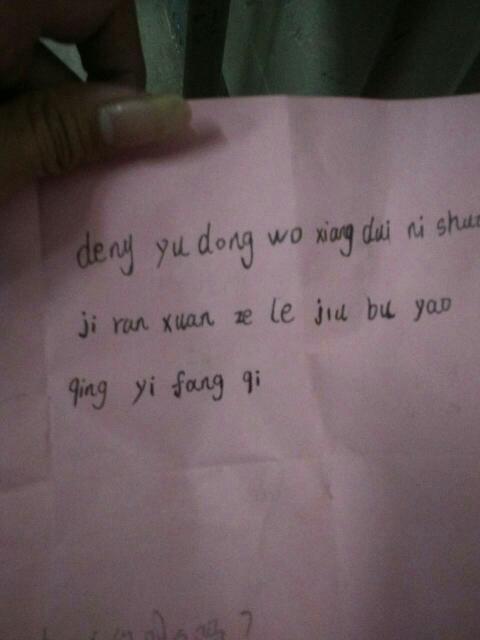 deng yu dong wo xiang dui ni
ji ran xuan ze le jiu bu yao
qing yi fang qi